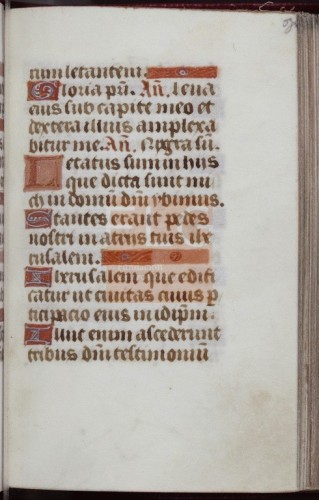 rum letantem.
Gloria pri. Añ. Leua
eius sub capite meo et
dextera illius amplexa
bitur me. Añ. Nigra su.
Letatus sum in hijs
que dicta sunt mi
chi in domū dñi ybimus.
Stantes erant pedes
nostri in atrijs tuis ihe
rusalem.
Iherusalem que edifi
catur ut ciuitas cuius p
ticipacio eius in idip̄m.
Illuc enim ascederunt
tribus dñi testimoniū